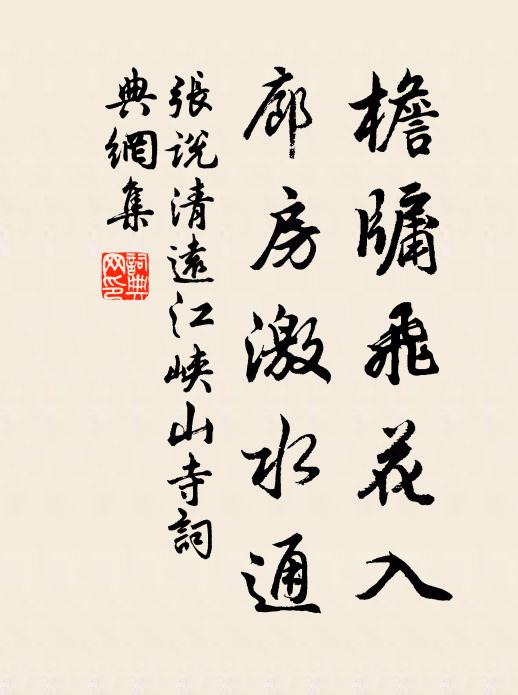 檐牖飛花入
廊房激水通
張說清遠江峽山寺詞
典網集
詞典網印